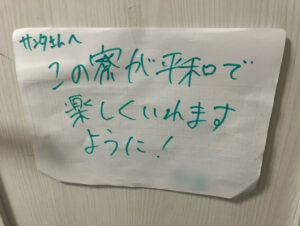 サンタさんへ
この寮が平和で
楽しくいれます
ように!